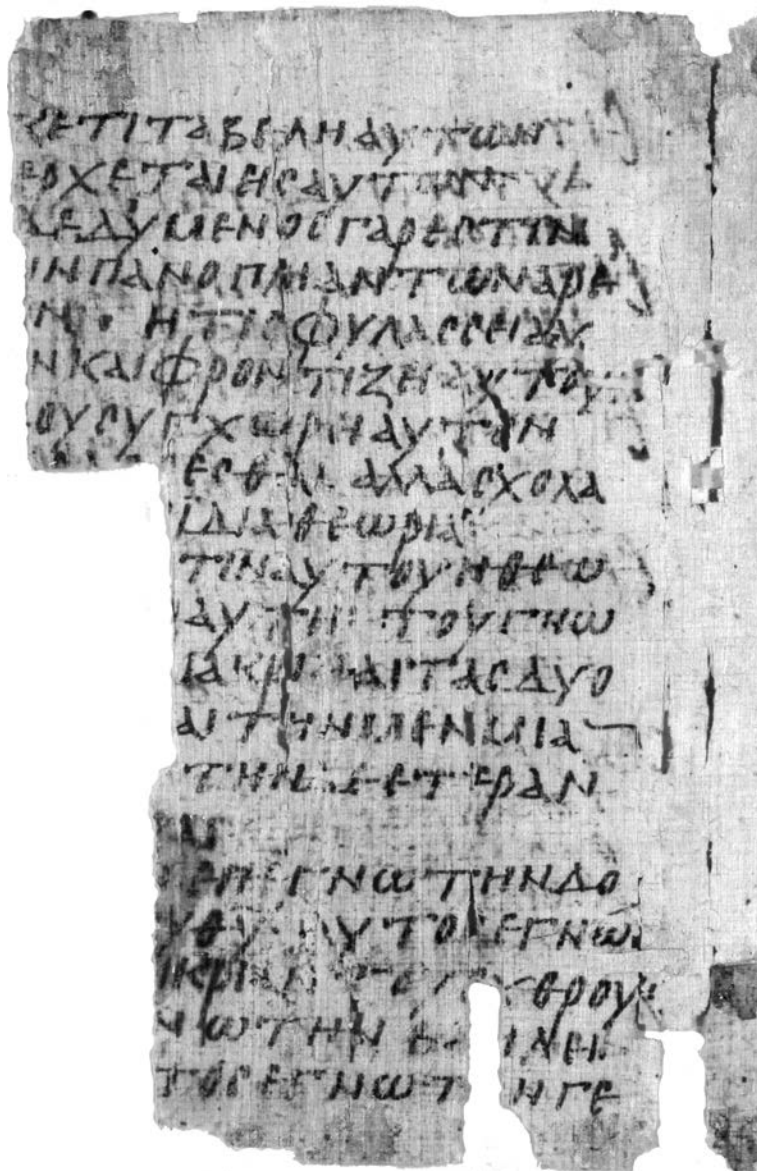 ΕΤΙ ΤΑ ΒΕΛΗ ΑΥΤΩΝ
ΕΡΧΕΤΑΙ ΕΙϹ ΑΥΤΟΝ
ΔΕΔΥΜΕΝΟϹ ΓΑΡ ΕϹΤΙΝ
ΙΝ ΠΑΝΟΠΛΙΑΝ ΤΩΝ ΑΡΕ
Ν · ΗΤΙϹ ΦΥΛΑϹϹΕΙ ΑΥ
Ν ΚΑΙ ΦΡΟΝΤΙΖΗ ΑΥΤΟΥ
ΟΥ ϹΥΓΧΩΡΗ ΑΥΤΟΝ
ΕϹΘΑΙ ΑΛΛΑ ϹΧΟΛΑ
ΙΔΙΑ ΘΕΩΡΙΑ
ΤΙΝ ΑΥΤΟΥ Η ΘΕΩ
ΑΥΤΗ ΤΟΥ ΓΝΩ
ΙΑΚΡΙ ΑΙ ΤΑϹ ΔΥΟ
ΑΙ ΤΗΝ ΜΕΝ ΜΙΑ
ΤΗΝ ΔΕ ΕΤΕΡΑΝ
ΕΠΕΓΝΩ ΤΗΝ ΔΟ
ΥΘΥ ΑΥΤΟϹ ΕΓΝΩ
ΚΡΙΑΝ ΤΟΥ ΕΧΘΡΟΥ
ΝΩ ΤΗΝ ΒΑϹΙΛΕΙ
ΤΟϹ ΕΓΝΩ ΤΗΝ ΓΕ